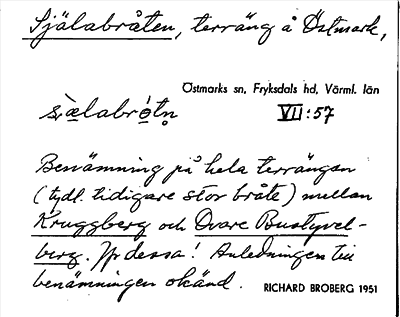 Själabråten, terräng å Östmark,
Östmarks sn, Fryksdals hd, Värml. län
VII:57
Benämning på hela terrängen
(tydl. tidigare stor bråte) mellan
Kruggberg och Ovare Bustyvel-
berg. Jfr dessa! Anledningen till
benämningen okänd.
RICHARD BROBERG 1951